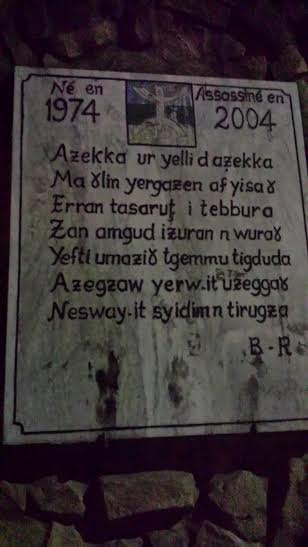 Né en
1974
Assassiné en
2004
Aẓekka ur yelli d aẓekka
Ma ɣlin yergazen af yisaɣ
Erran tasaruţ i tebbura
Ẓan amgud iẓuran n wuraɣ
Yefti umaziɣ tgemmu tigduda
Azegzaw yerw.it uzeggaɣ
Nesway-it s yidim n tirugza
B-R